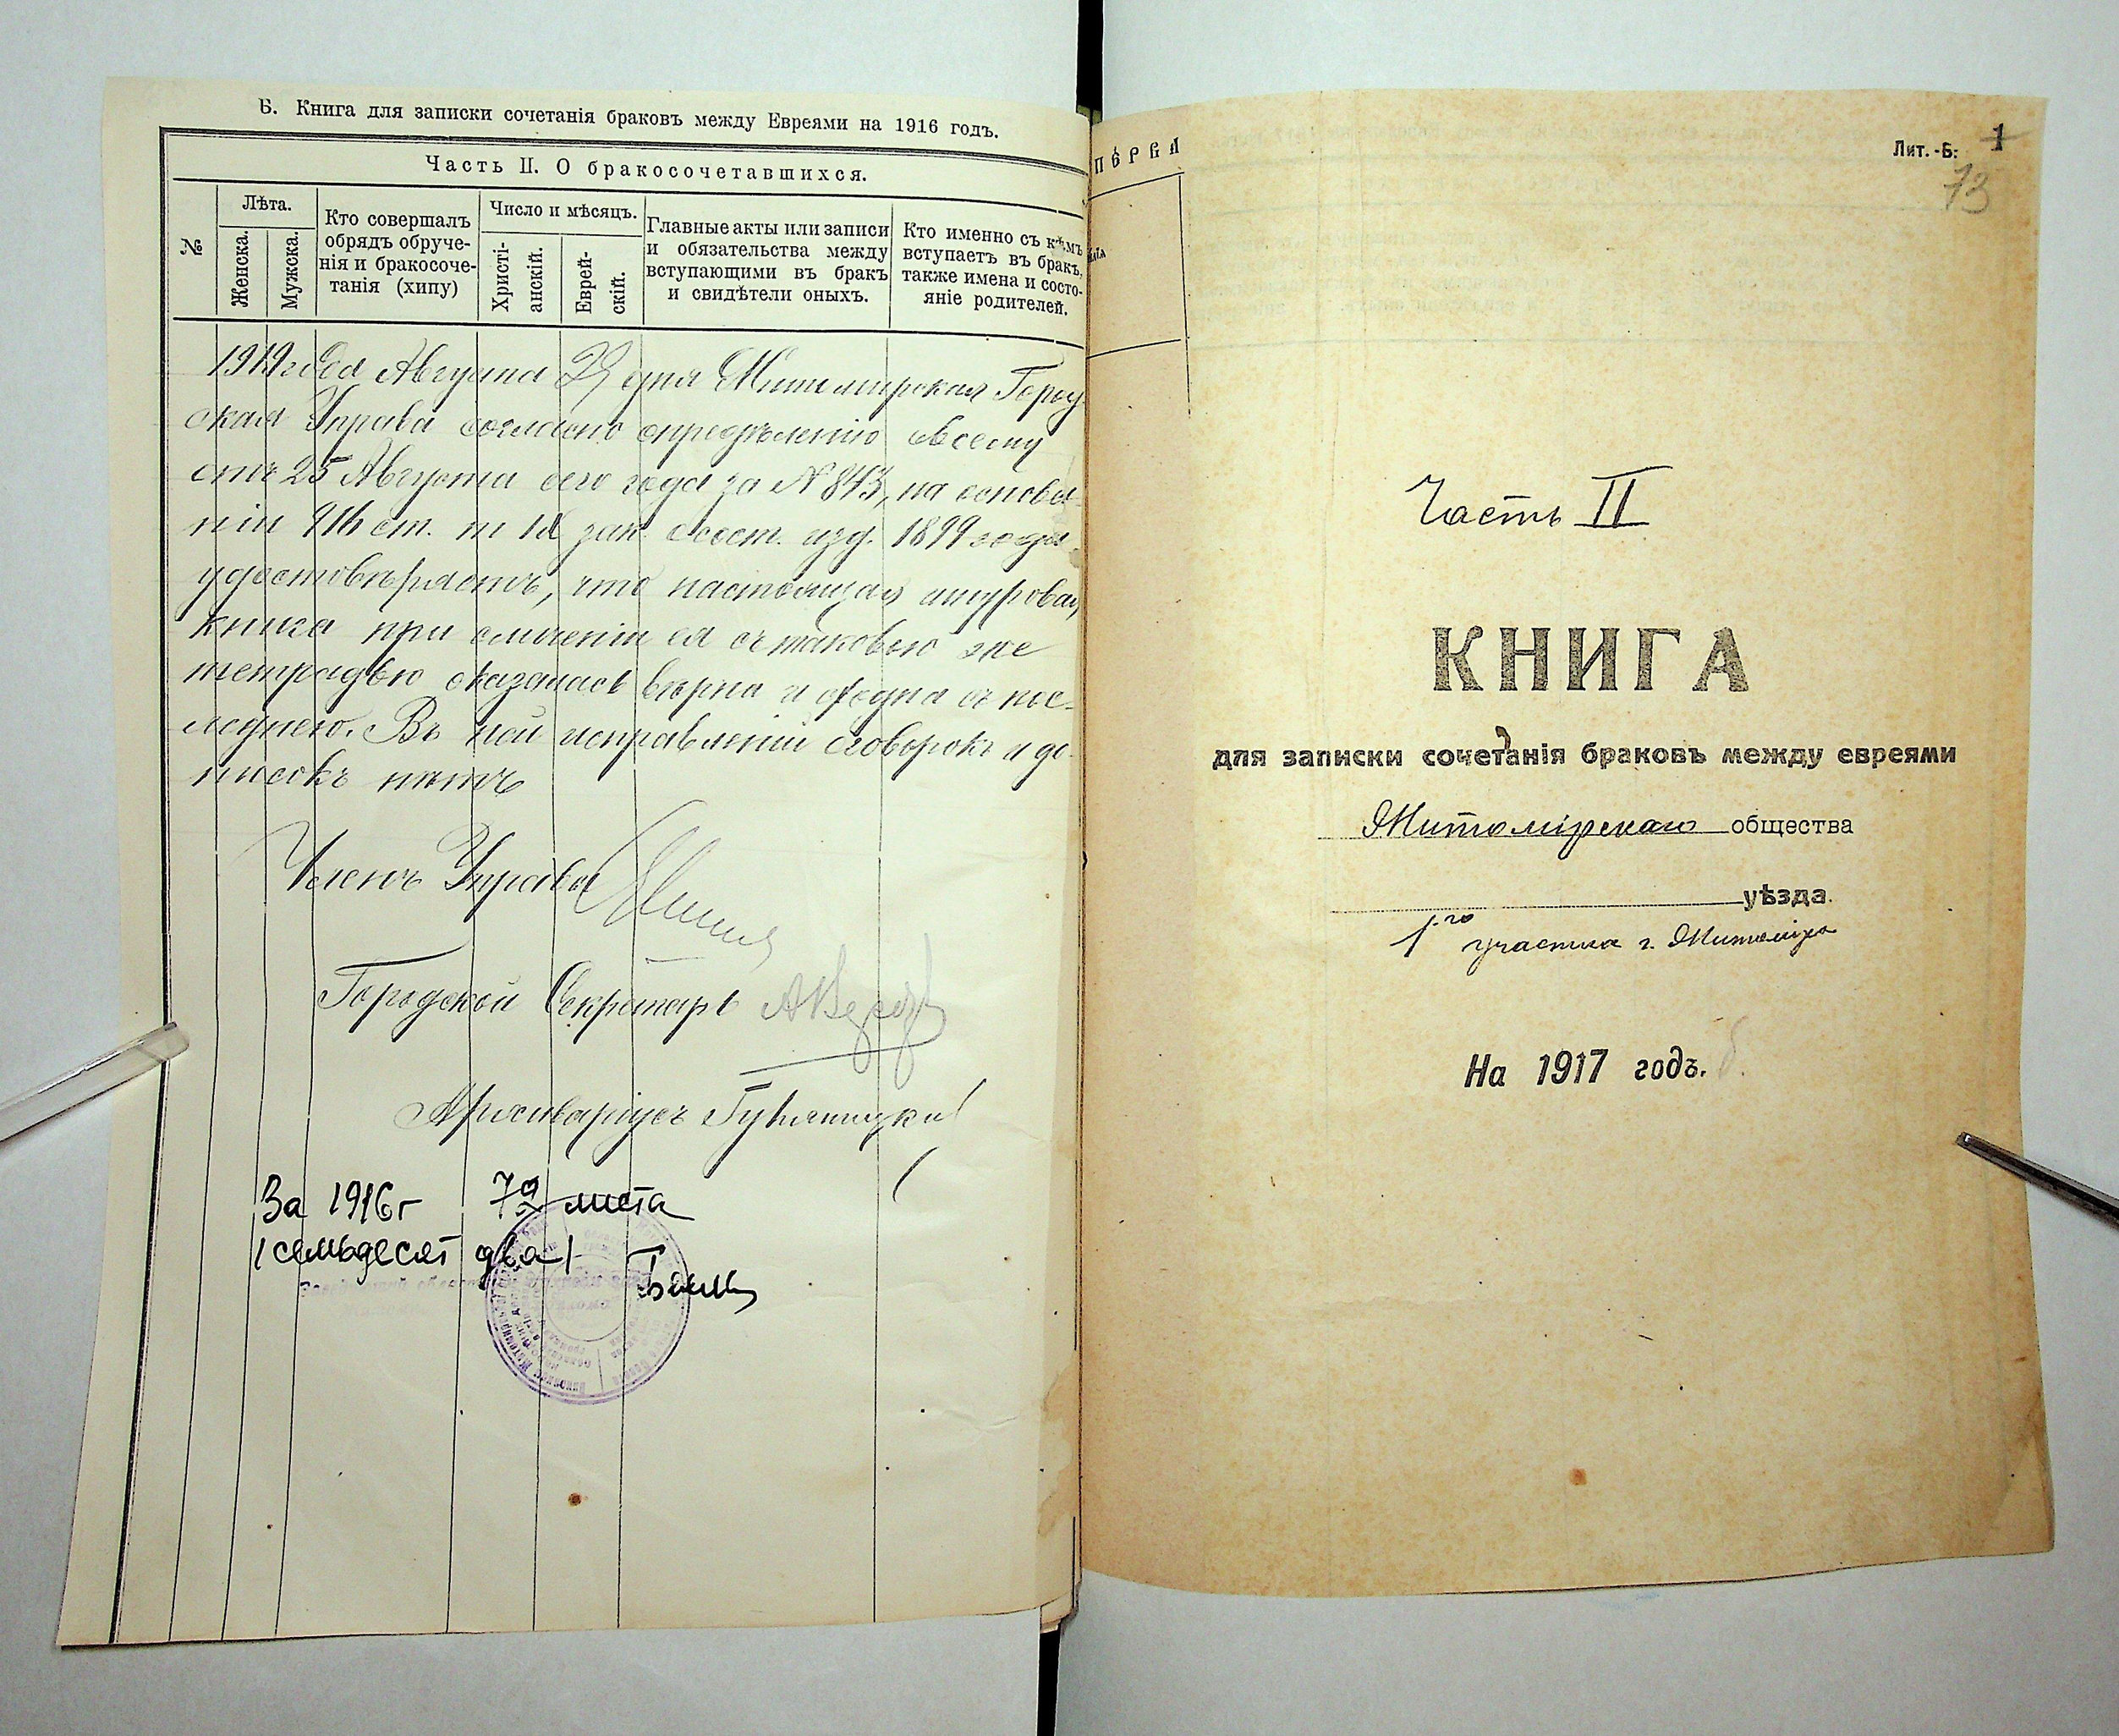 Б. Книга для записки сочетанія браковъ между Евреями на 1916 годъ.
Часть II. О бракосочетавшихся.
№
Лѣта.
Женска.
Мужска.
Кто совершалъ
обрядъ обруче-
нія и бракосоче-
танія (хипу)
Число и мѣсяцъ.
Христі-
анскій.
Еврей-
скій.
Главные акты или записи
и обязательства между
вступающими въ бракъ
и свидѣтели оныхъ.
Кто именно съ кѣмъ
вступаетъ въ бракъ,
также имена и состо-
яніе родителей.
1919 года Августа 29 дня Житомирская Город
ская Управа согласно опредѣленію своему
отъ 25 Августа сего года за № 843, на основа-
ніи ст. зак. о сост. изд. 1899 года
удостовѣряетъ, что настоящая шнуровая
книга при сличеніи ея съ таковою же
тетрадью оказалась вѣрна и сходна съ пос-
лѣднею. Въ ней исправленій оговорокъ и до-
писокъ нѣтъ
Членъ Управы
Городской Секретарь
Архиваріусъ
За 1916 г 72 листа
(семьдесят два)
ПЕРВА
Лит. -Б: 1
73
Часть II
КНИГА
для записки сочетанія браковъ между евреями
Житомірскаго общества
уѣзда.
1го участка г. Житоміра
На 1917 годъ.